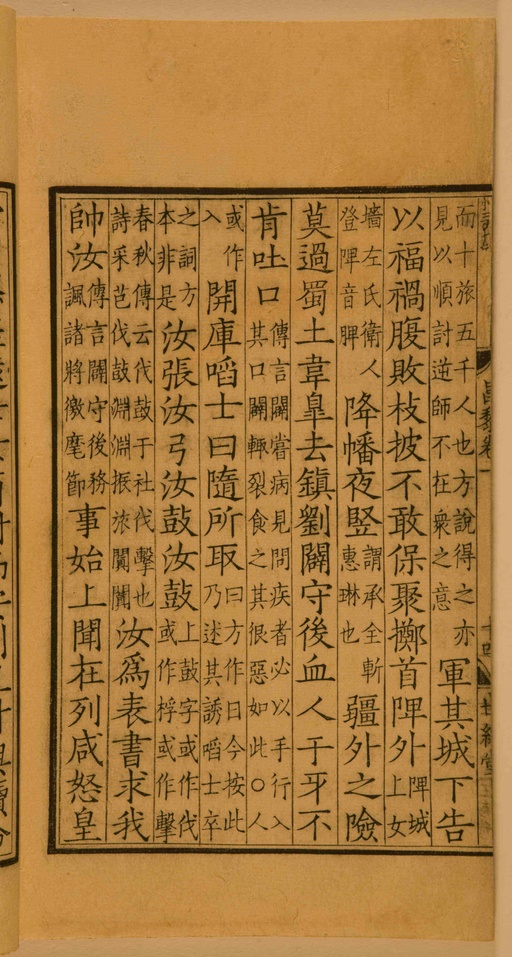 而十旅五千人也方說得之亦
見以順討逆師不在衆之意
軍其城下告
以福禍腹敗枝披不敢保聚擲首陴外
陴城
上女
墻左氏衛人
登陴音脾
降幡夜竪
謂承全斬
惠琳也
疆外之險
莫過蜀土韋皐去鎮劉闢守後血人于牙不
肯吐口
傳言闢嘗病見問疾者必以手行入
其口闢輙裂食之其很惡如此○人
或作
入
開庫啗士曰隨所取
曰方作日今按此
乃述其誘啗士卒
之詞方
本非是
汝張汝弓汝鼓汝鼓
上鼓字或作伐
或作桴或作擊
春秋傳云伐鼓于社伐擊也
詩采芑伐鼓淵淵振旅闐闐
汝爲表書求我
帥汝
傳言闢守後務
諷諸將徼麾節
事始上聞在列咸怒皇